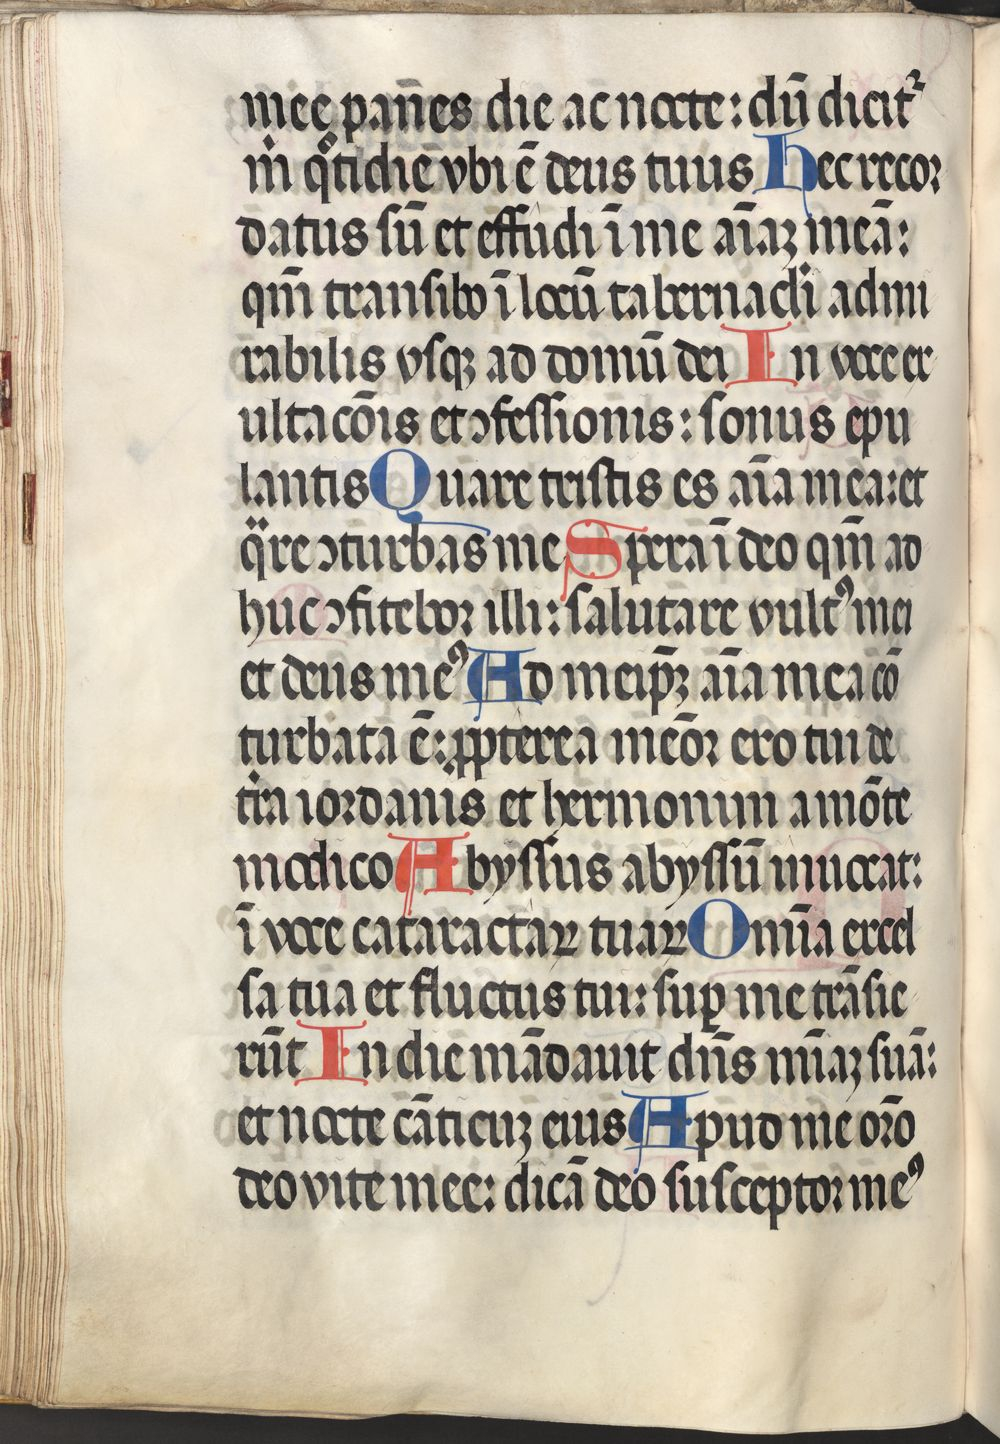 mee pan̄es die ac nocte: dū dicit᷑
ṁ qͦtidie vbi ē deus tuus Hec recor
datus sū et effudi ī me aīaꝫ meā:
qm̄ transibo ī locū tabernacl̓i admi
rabilis vsqꝫ ad domū dei In voce ex
ultacōis et ꝯfessionis: sonus epu
lantis Quare tristis es aīa mea: et
qͣre ꝯturbas me Spera ī deo qm̄ ad
huc ꝯfitebor illi: salutare vultꝰ mei
et deus meꝰ Ad meip̄ꝫ aīa mea cō
turbata ē: ꝓpterea mēor ero tui de
tr̄a iordanis et hermonum a mōte
modico Abyssus abyssū inuocat:
ī voce cataractaꝝ tuaꝝ Omīa excel
sa tua et fluctus tui: suꝑ me trāsie
rūt In die mādauit dn̄s mīaꝫ suā:
et nocte cāticuꝫ eius Apud me orō
deo vite mee: dicā deo susceptor meꝰ